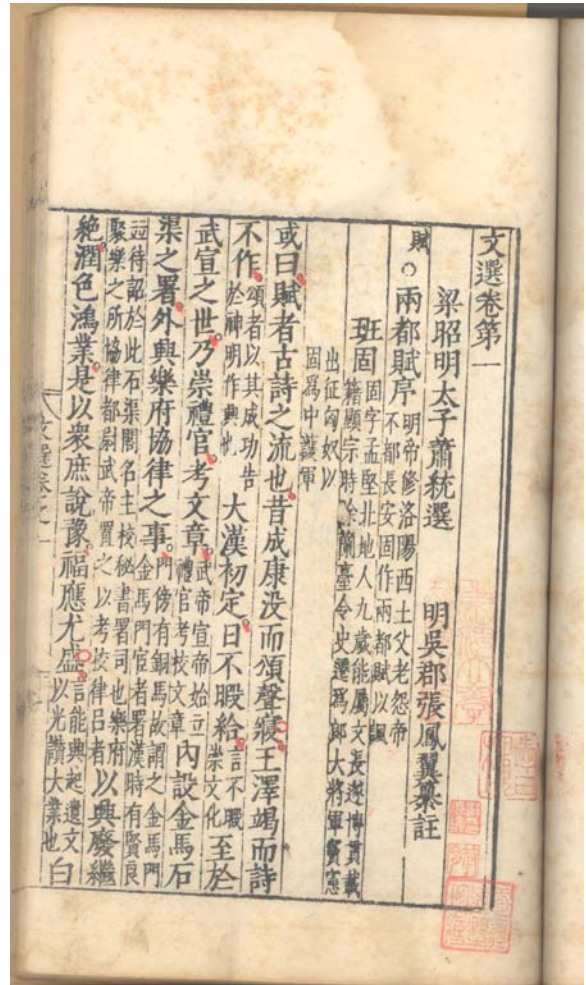 文選卷第一
梁昭明太子蕭統選 明吳郡張鳳翼纂註
賦○兩都賦序 明帝修洛陽西土父老怨帝不都長安固作兩都賦以諷
班固 固字孟堅北地人九歲能屬文長遂博貫載籍顯宗時除蘭臺令史遷爲郎大將軍竇憲
出征匈奴以固爲中護軍
或曰賦者古詩之流也昔成康没而頌聲寢王澤竭而詩
不作 頌者以其成功告於神明作興也 大漢初定日不暇給 言不暇崇文化 至於
武宣之世乃崇禮官考文章 武帝宣帝始立禮官考校文章 内設金馬石
渠之署外興樂府協律之事 門傍有銅馬故謂之金馬門金馬門宦者署漢時有賢良
並待詔於此石渠閣名主校秘書署司也樂府聚樂之所協律都尉武帝置之以考校律呂者 以興廢繼
絶潤色鴻業是以衆庶說豫福應尤盛 言能興起遺文以光讚大業也 白
文選卷之一